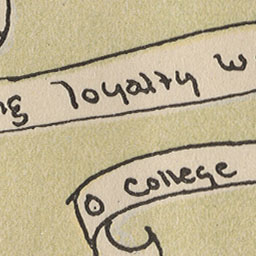 loyalty
O college